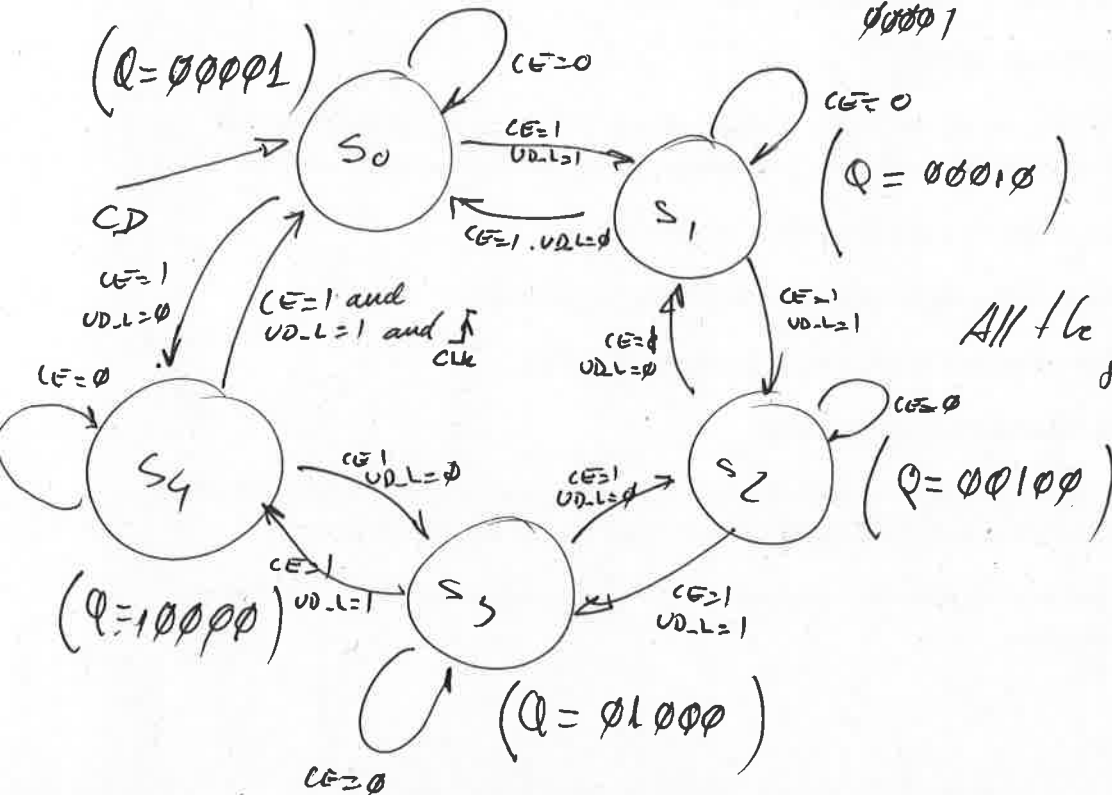 ØØØØ1
(Q=ØØØØ1)
CE=0
S0
CE=1
UD_L=1
CE=0
(Q = ØØØ1Ø)
S1
CD
CE=1 . UD_L=Ø
CE=1
UD_L=Ø
CE=1 and
UD_L=1 and
CLK
CE=1
UD_L=1
All the
UD_L=Ø
CE=Ø
CE=Ø
S4
S2
(Q=ØØ1ØØ)
CE=1
UD_L=Ø
CE=1
UD_L=Ø
(Q=1ØØØØ)
CE=1
UD_L=1
S3
CE=1
UD_L=1
(Q = Ø1ØØØ)
CE=Ø